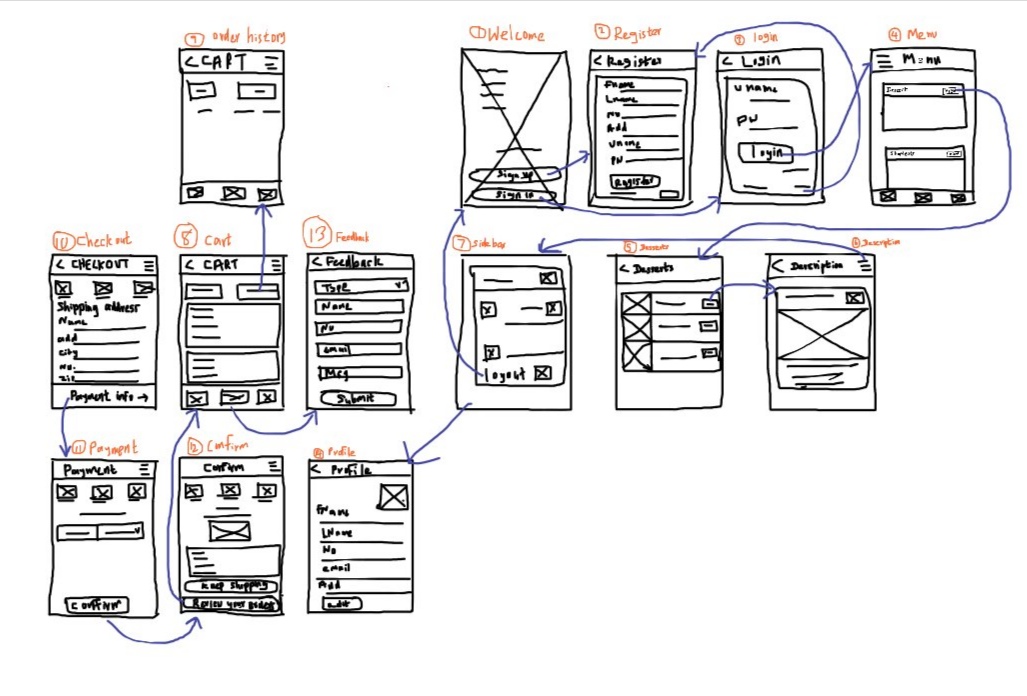 9 order history
< CART
1 Welcome
Sign up
Sign in
2 Register
< Register
Fname
Lname
No
Add
Uname
PW
Register
3 login
< Login
Uname
PW
login
4 Menu
Menu
10 Checkout
< CHECKOUT
Shipping address
Name
add
city
no.
zip
Payment info →
8 Cart
< CART
13 Feedback
< Feedback
Type
Name
No
email
Msg
Submit
7 Side bar
logout
5 Desserts
< Desserts
6 Description
< Description
11 Payment
Payment
confirm
12 Confirm
Confirm
Keep shipping
Review your order
Profile
< Profile
FName
LName
No
email
Add
edit